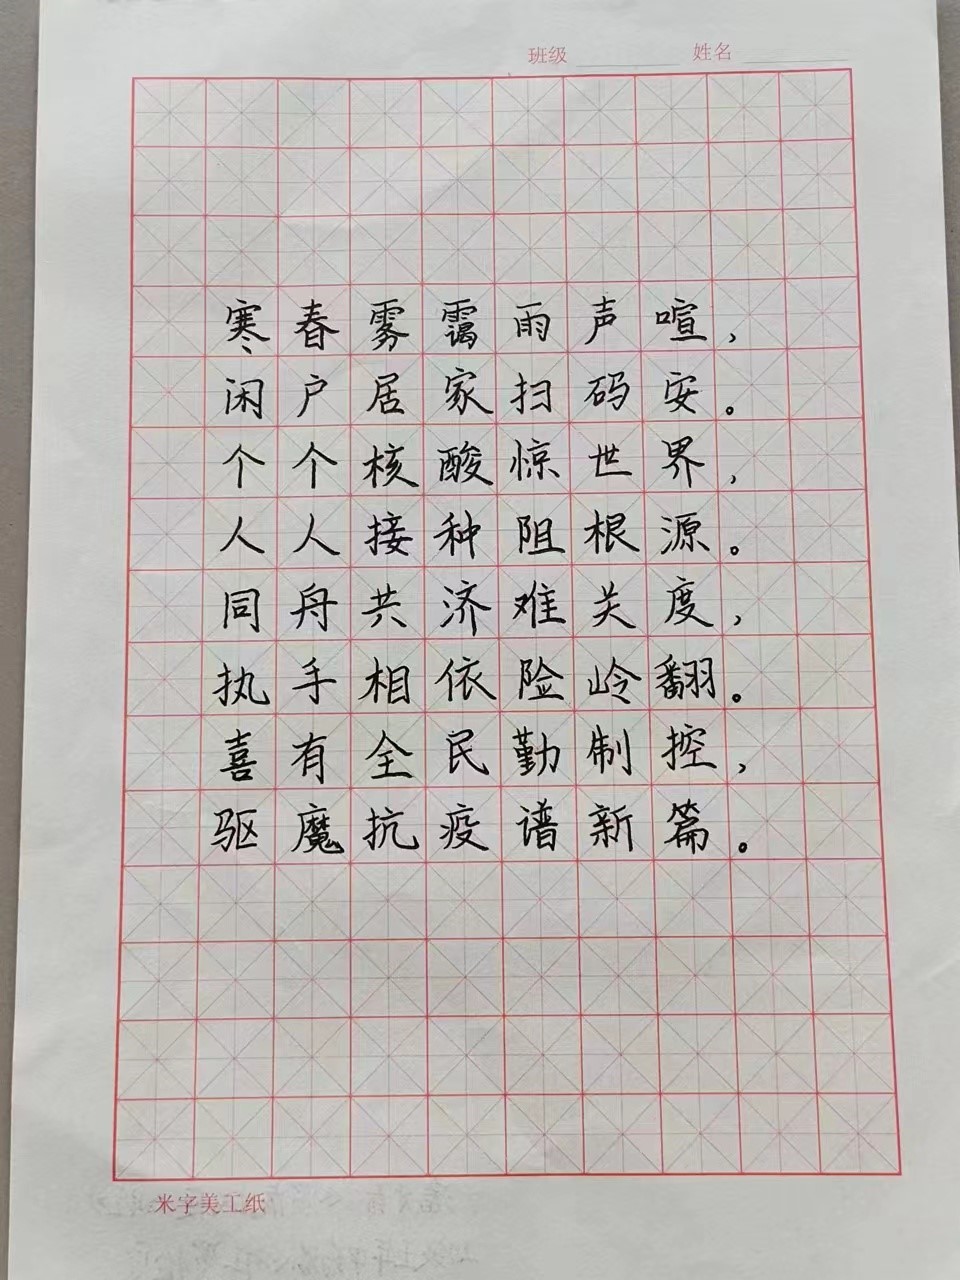 班级 姓名
寒春雾霭雨声喧，
闲户居家扫码安。
个个核酸惊世界，
人人接种阻根源。
同舟共济难关度，
执手相依险岭翻。
喜有全民勤制控，
驱魔抗疫谱新篇。
米字美工纸